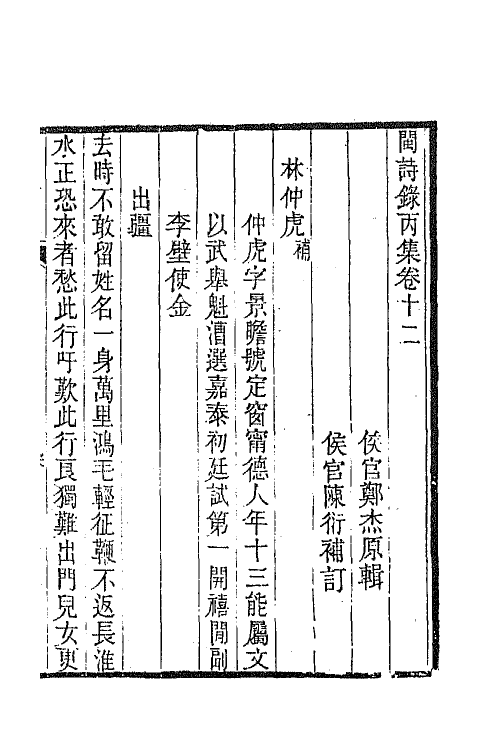 閩詩錄丙集卷十二
侯官鄭杰原輯
侯官陳衍補訂
林仲虎補
仲虎字景瞻號定窗甯德人年十三能屬文
以武舉魁漕選嘉泰初廷試第一開禧閒副
李壁使金
出疆
去時不敢留姓名一身萬里鴻毛輕征鞭不返長淮
水正恐來者愁此行吁歎此行良獨難出門兒女更